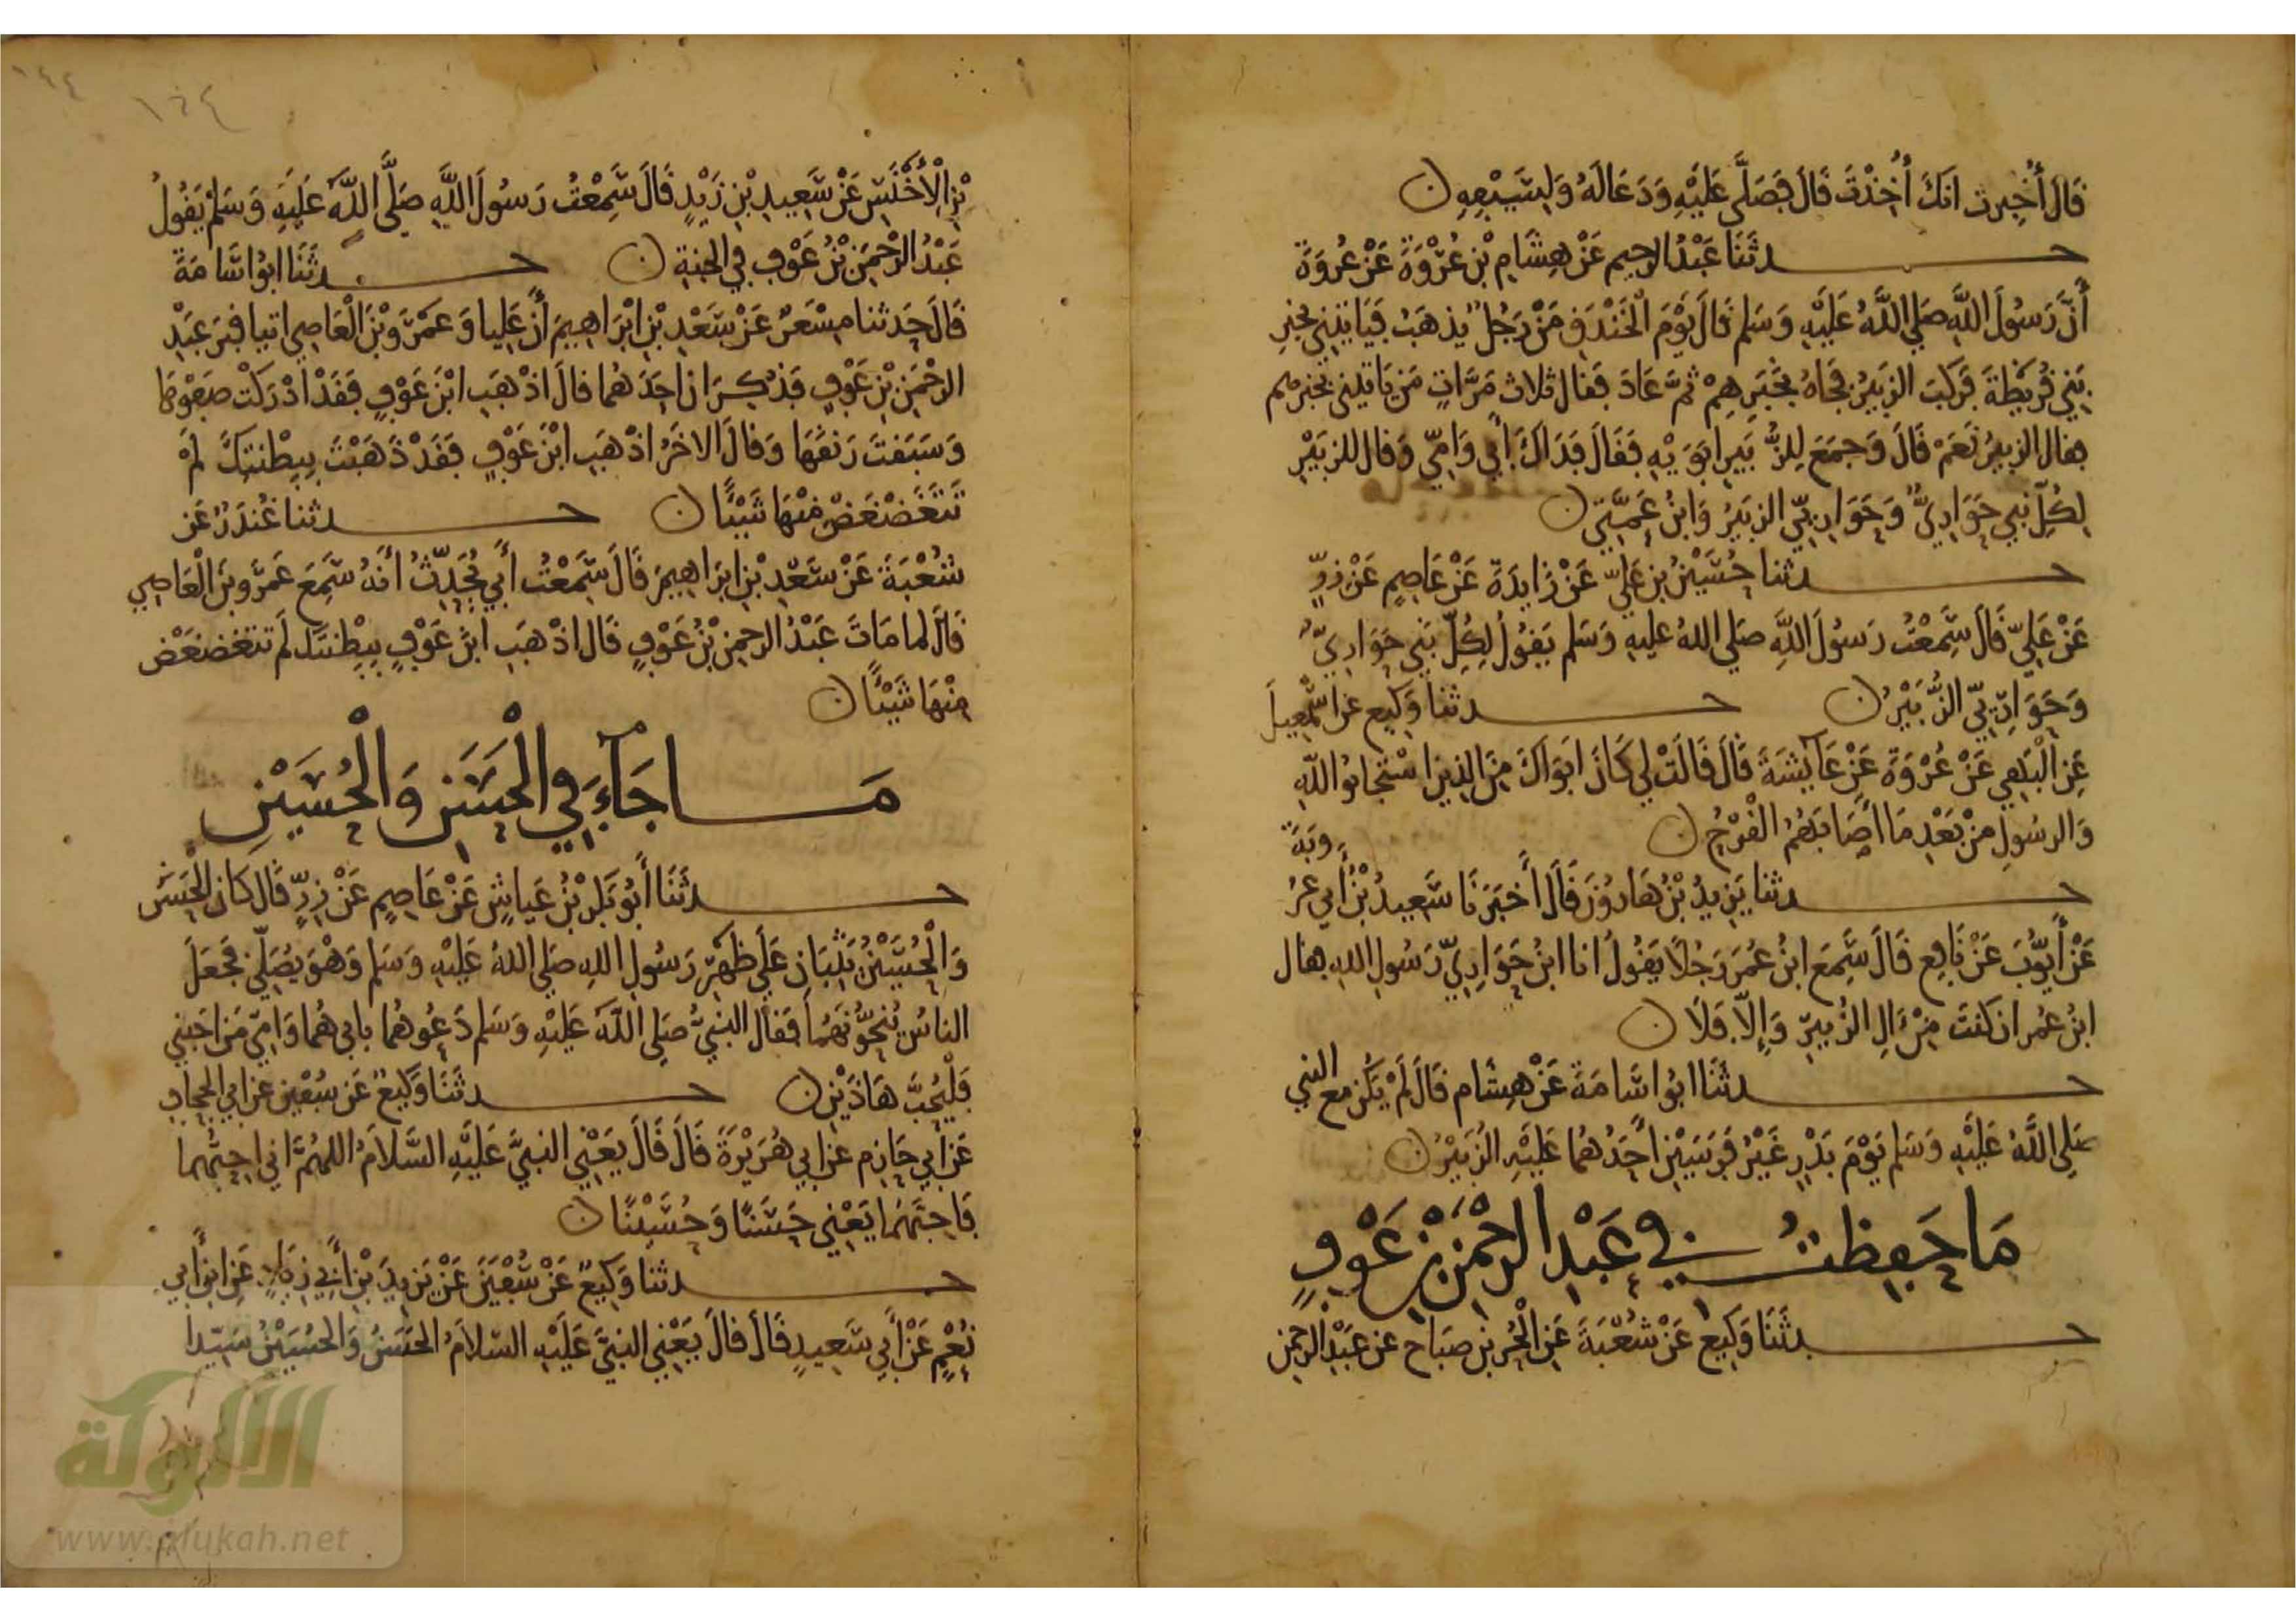 قَالَ أُخْبِرتُ انَكَ أُخِذْتَ قَالَ فَصَلَّى عَلَيْهِ وَدَعَا لَهُ وَلِسَيْفِهِ
حدثَنَا عَبْدُ الرحيم عَنْ هِشَامِ بْنِ عُرْوَةَ عَنْ عُرْوَةَ
أَنَّ رَسُولَ اللَّهِ صَلى اللَّهُ عَلَيْهِ وَسَلم قالَ يَوْمَ الْخَنْدَقِ مَنْ رَجُلٌ يذهَبُ فَيَاتِيَنِي بخَبرِ
بَنِي قُرَيْظةَ فَرَكِبَ الزبَيرُ فجَاهُ بِخَبَرِهِمْ ثمَّ عَادَ فَقال ثلاث مَرَّاتٍ مَن يَاتيني بخبرهم
فقال الزبيرُ نَعَمْ قَالَ وَجمَعَ لِلزُّبَيرِ ابَوَيْهِ فَقَالَ فَدَاكَ أبي وَامِّي وَقال للزبَيْرِ
لِكُلِّ نبي حَوَارِيٌّ وَحَوَارِيِّي الزبَيرُ وَابنُ عَمَّتِي
حدثنا حُسَيْنُ بن عَليّ عَنْ زَايدَةَ عَنْ عَاصِمٍ عَنْ زِرٍّ
عَنْ عَلِيّ قَالَ سَمِعْتُ رَسُولَ اللَّهِ صَلى اللهُ عليهِ وَسَلم يَقُولُ لِكُلِّ نَبي حَوَارِيٌّ
وَحَوَارِيِّي الزُّبَيْرُ حدثنا وَكيع عن اسْمعِيلَ
عَنِ الْبَهي عَنْ عُرْوَةَ عَنْ عَايشَةَ قَالَ قَالَتْ لي كَانَ ابَوَاكَ مِنَ الذِينَ اسْتَجَابُوا للَّهِ
وَالرسُولِ مِنْ بَعْدِ مَا أصَابَهُمُ القَرْحُ
حدثنا يَزِيدُ بْنُ هَارُونَ قَالَ أَخبَرَنَا سَعِيدُ بْنُ أَبي عَرُوبَةَ
عَنْ أَيُّوبَ عَنْ نَافِع قَالَ سَمِعَ ابنُ عُمَرَ رَجُلاً يَقُولُ انا ابنُ حَوَارِيِّ رَسُولِ اللهِ فقال
ابنُ عُمر ان كنتَ مِنْ ءَالِ الزُّبيرِ وَإلاَّ فَلاَ
حدثَنَا ابُو اسَامَةَ عَنْ هِشام قَالَ لَمْ يَكُن مع النبي
صَلى اللَّهُ عَلَيْهِ وَسَلم يَوْمَ بَدْرٍ غَيْرُ فَرَسَيْنِ أَحَدُهُمَا عَلَيْهِ الزُبَيْرُ
مَا حَفِظتُ فِي عَبْدِ الرحْمَنِ بْنِ عَوْفٍ
حدثَنَا وَكيع عَنْ شُعْبَةَ عَنِ الْحُر بْن صَبَاح عن عَبْدِ الرحمن
بْنِ الأَخْنَسِ عَنْ سَعِيدِ بْنِ زَيْدٍ قَالَ سَمِعْتُ رَسُولَ اللَّهِ صَلَّى اللَّهُ عَلَيْهِ وَسَلمْ يَقُولُ
عَبْدُ الرحْمَنِ بْنُ عَوْف فِي الجنةِ حدثَنَا ابُو اسَامَةَ
قَالَ حَدثنا مِسْعَرٌ عَنْ سَعْدِ بْنِ ابْرَاهِيمَ أَنَّ عَلِيا وَعَمْرَو بْنَ الْعَاصِي اتيا قبرَ عَبْدِ
الرحْمَنِ بْنِ عَوْفٍ فَذكِرَ ان احَدَهُما قالَ اذْهَبِ ابْنَ عَوْفٍ فَقَدْ ادْرَكْت صَفْوَهَا
وَسَبَقتَ رَنقَهَا وَقالَ الاخَرُ اذْهَبِ ابْنَ عَوْفٍ فَقَدْ ذَهَبْتَ بِبِطْنَتِكَ لَمْ
تَتَغَضْغَضْ مِنْهَا شَيْئًا حدثنا غُنْدَرُ عَن
شُعْبَةَ عَنْ سَعْدِ بْنِ ابرَاهِيمَ قَالَ سَمِعْتُ أَبِي يُحَدِّثُ أَنَهُ سَمِعَ عَمْرَو بْنَ الْعَاصِي
قَالَ لما مَاتَ عَبْدُ الرحمنِ بْنُ عَوْفٍ قَالَ اذْهَبِ ابْنَ عَوْفٍ بِبِطْنتكَ لَم تتغَضغَضْ
مِنْهَا شَيْئًا
مَا جَاءَ فِي الْحَسَنِ وَالْحُسَيْنِ
حدثَنَا أَبُو بَكر بْنُ عَياش عَنْ عَاصِمٍ عَنْ زِرٍّ قَال كَان الْحَسَنُ
وَالْحُسَيْنُ يَثِبَانِ عَلَى ظهْرِ رَسُولِ اللهِ صَلى اللهُ عَلَيْهِ وَسَلم وَهْوَ يُصَلِّي فَجَعَلَ
الناسُ يُنَحُّونَهُمَا فَقال النبيُّ صَلى اللَّهُ عَلَيْهِ وَسَلم دَعُوهُمَا بابي هُمَا وَامِّي مَن احَبني
فَلْيُحِبَّ هَاذَيْنِ حدثَنَا وَكِيعٌ عَن سُفْين عن ابي الجحاف
عَن ابي حَازِم عن ابي هُرَيْرَةَ قَالَ قَالَ يَعْنِي النبيَّ عَلَيْهِ السَّلاَمُ اللهُمَّ اني احِبُّهُما
فَاحِبَّهُمَا يَعْنِي حَسَنًا وَحُسَيْنًا
حدثنا وَكِيعٌ عَنْ سُفْيَنَ عَنْ يَزِيدَ بْنِ أَبِي زِيَادٍ عَنِ ابْنِ أَبي
نُعْمٍ عَنْ أَبِي سَعِيدٍ قَالَ قالَ يَعْنِي النبيَّ عَلَيْهِ السّلاَمُ الحَسَنُ وَالحُسَيْنُ سَيّدا
١٤٤
الألوكة
www.alukah.net